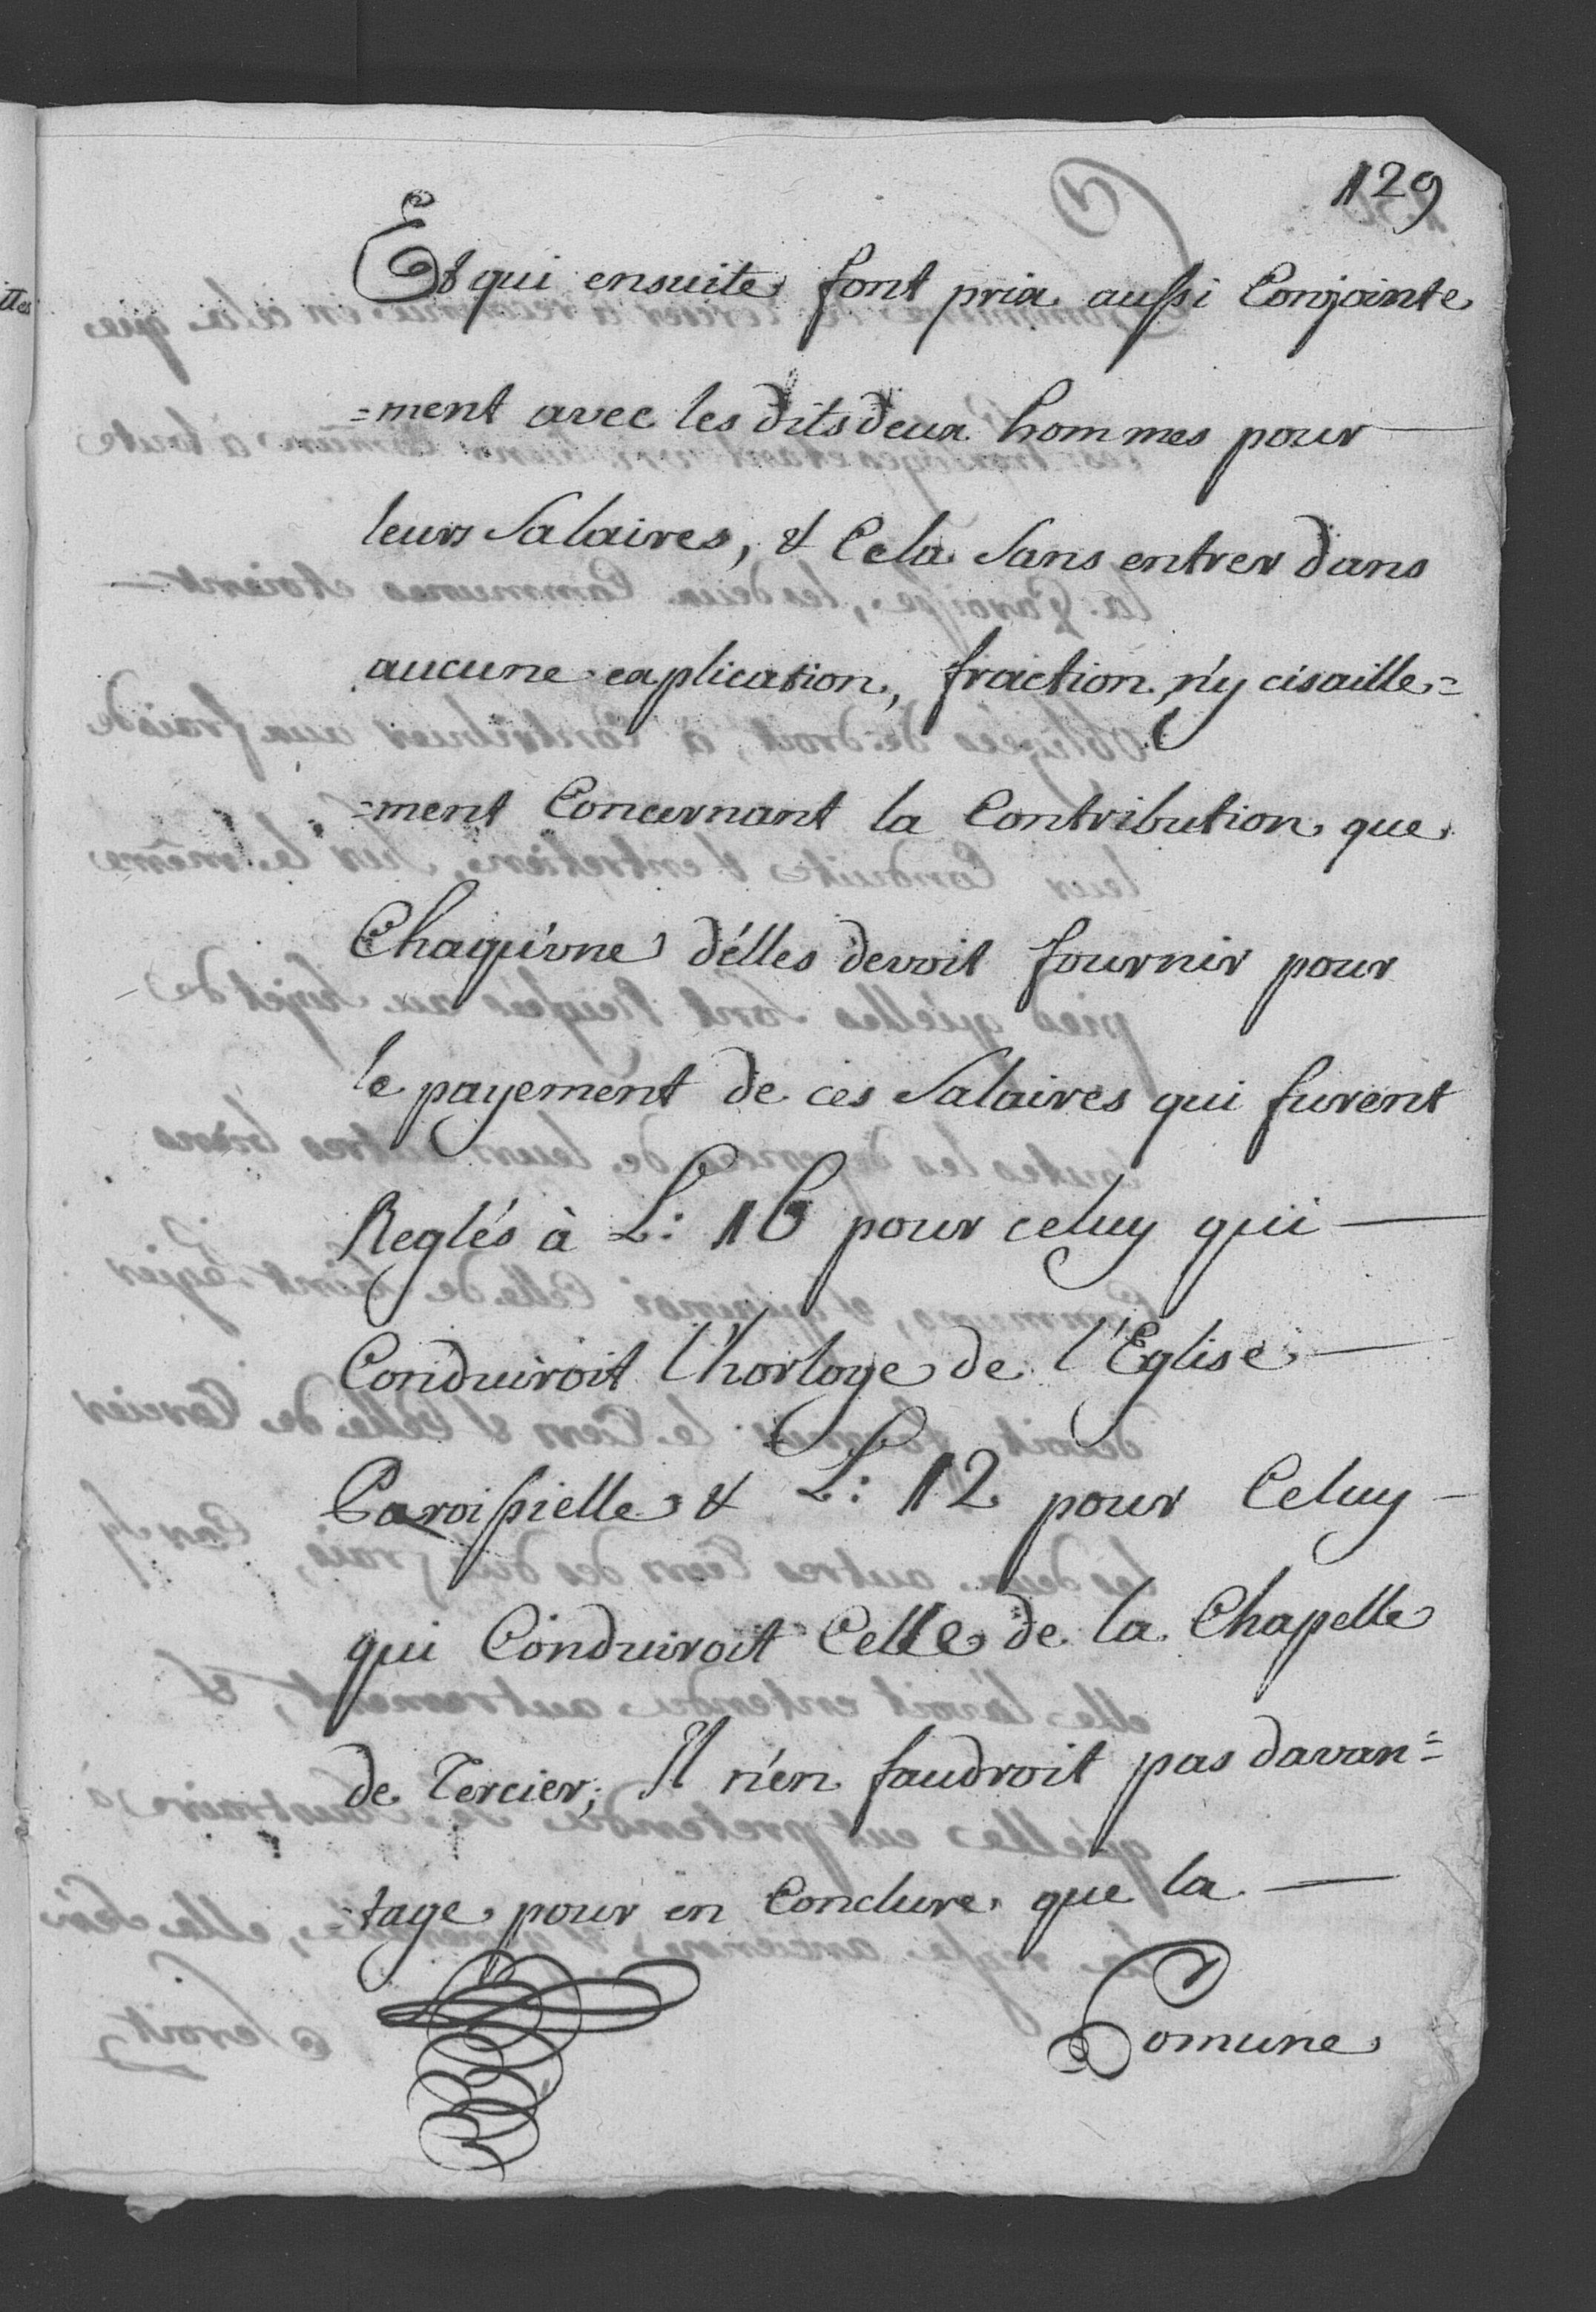 129
Et qui ensuite font prix aussi Conjointe
=ment avec les dits deux hommes pour
leurs Salaires, & Cela Sans entrer dans
aucune explication, fraction, n'y cisaille=
=ment Concernant la Contribution que
Chaqu'une d'élles devoit fournir pour
le payement de ces Salaires qui furent
Reglés à L: 16 pour celuy qui
Conduiroit l'horloge de l'Eglise
Paroissielle & L: 12 pour Celuy
qui Conduiroit Celle de la Chapelle
de Tercier; Il n'en faudroit pas davan=
=tage pour en Conclure que la
Comune